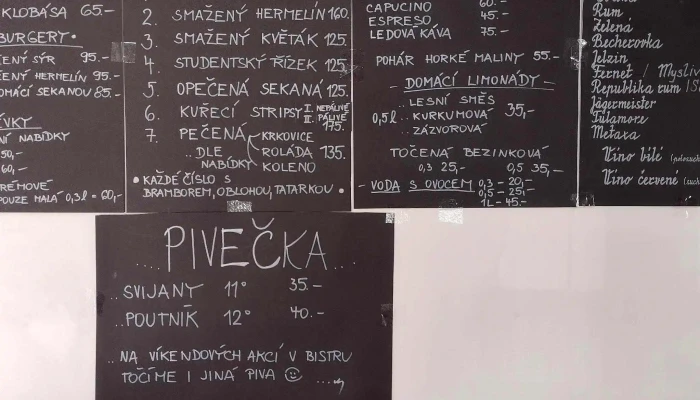 KLOBÁSA 65.-
BURGERY •
SÝR 95.-
HERMELÍN 95.-
SEKANOU 85.-
NABÍDKY
50,-
60,-
MALÁ 0,3l = 60,-
2. SMAŽENÝ HERMELÍN 160.
3. SMAŽENÝ KVĚTÁK 125.
4. STUDENTSKÝ ŘÍZEK 125.
5. OPEČENÁ SEKANÁ 125.
6. KUŘECÍ STRIPSY I. NEPÁLIVÉ
II. PÁLIVÉ
175.
7. PEČENÁ KRKOVICE
..DLE ROLÁDA 135.
NABÍDKY KOLENO
• KAŽDÉ ČÍSLO S
BRAMBOREM, OBLOHOU, TATARKOU •
CAPUCINO 60.-
ESPRESO 45.-
LEDOVÁ KÁVA 75.-
POHÁR HORKÉ MALINY 55.-
- DOMÁCÍ LIMONÁDY -
..LESNÍ SMĚS
0,5l ..KURKUMOVÁ 35,-
..ZÁZVOROVÁ
TOČENÁ BEZINKOVÁ
0,3 25,- 0,5 35,-
- VODA S OVOCEM 0,3 - 20,-
0,5 - 25,-
1L - 45.-
Rum
Zelená
Becherovka
Jelzin
Fernet /
Republika rum /
Jägermeister
Tulamore
Metaxa
Víno bílé
Víno červené
PIVEČKA
..SVIJANY 11° 35.-
..POUTNÍK 12° 40.-
..NA VÍKENDOVÝCH AKCÍ V BISTRU
TOČÍME I JINÁ PIVA ☺ ....